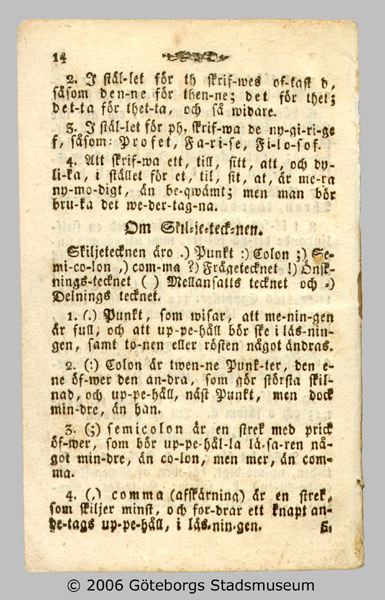 14
2. I stäl-let för th skrif-wes of-tast d,
såsom den-ne för then-ne; det för thet;
det-ta för thet-ta, och så widare.
3. I stäl-let för ph, skrif-wa de ny-gi-ri-ge
f, såsom: Profet, Fa-ri-se, Fi-lo-sof.
4. Att skrif-wa ett, till, sitt, att, och dy-
li-ka, i stället för et, til, sit, at, är me-ra
ny-mo-digt, än be-qwämt; men man bör
bru-ka det we-der-tag-na.
Om Skil-je-teck-nen.
Skiljetecknen äro .) Punkt :) Colon ;) Se-
mi-co-lon ,) com-ma ?) Frågetecknet !) Önsk-
nings-tecknet ( ) Mellansatts tecknet och -)
Delnings tecknet.
1. (.) Punkt, som wisar, att me-nin-gen
är full, och att up-pe-håll bör ske i läs-nin-
gen, samt to-nen eller rösten något ändras.
2. (:) Colon är twen-ne Punk-ter, den e-
ne öf-wer den an-dra, som gör största skil-
nad, och up-pe-håll, näst Punkt, men dock
min-dre, än han.
3. (;) semicolon är en strek med prick
öf-wer, som bör up-pe-häl-la lä-sa-ren nå-
got min-dre, än co-lon, men mer, än com-
ma.
4. (,) comma (afskärning) är en strek,
som skiljer minst, och for-drar ett knapt an-
de-tags up-pe-håll, i läs-nin-gen.
© 2006 Göteborgs Stadsmuseum